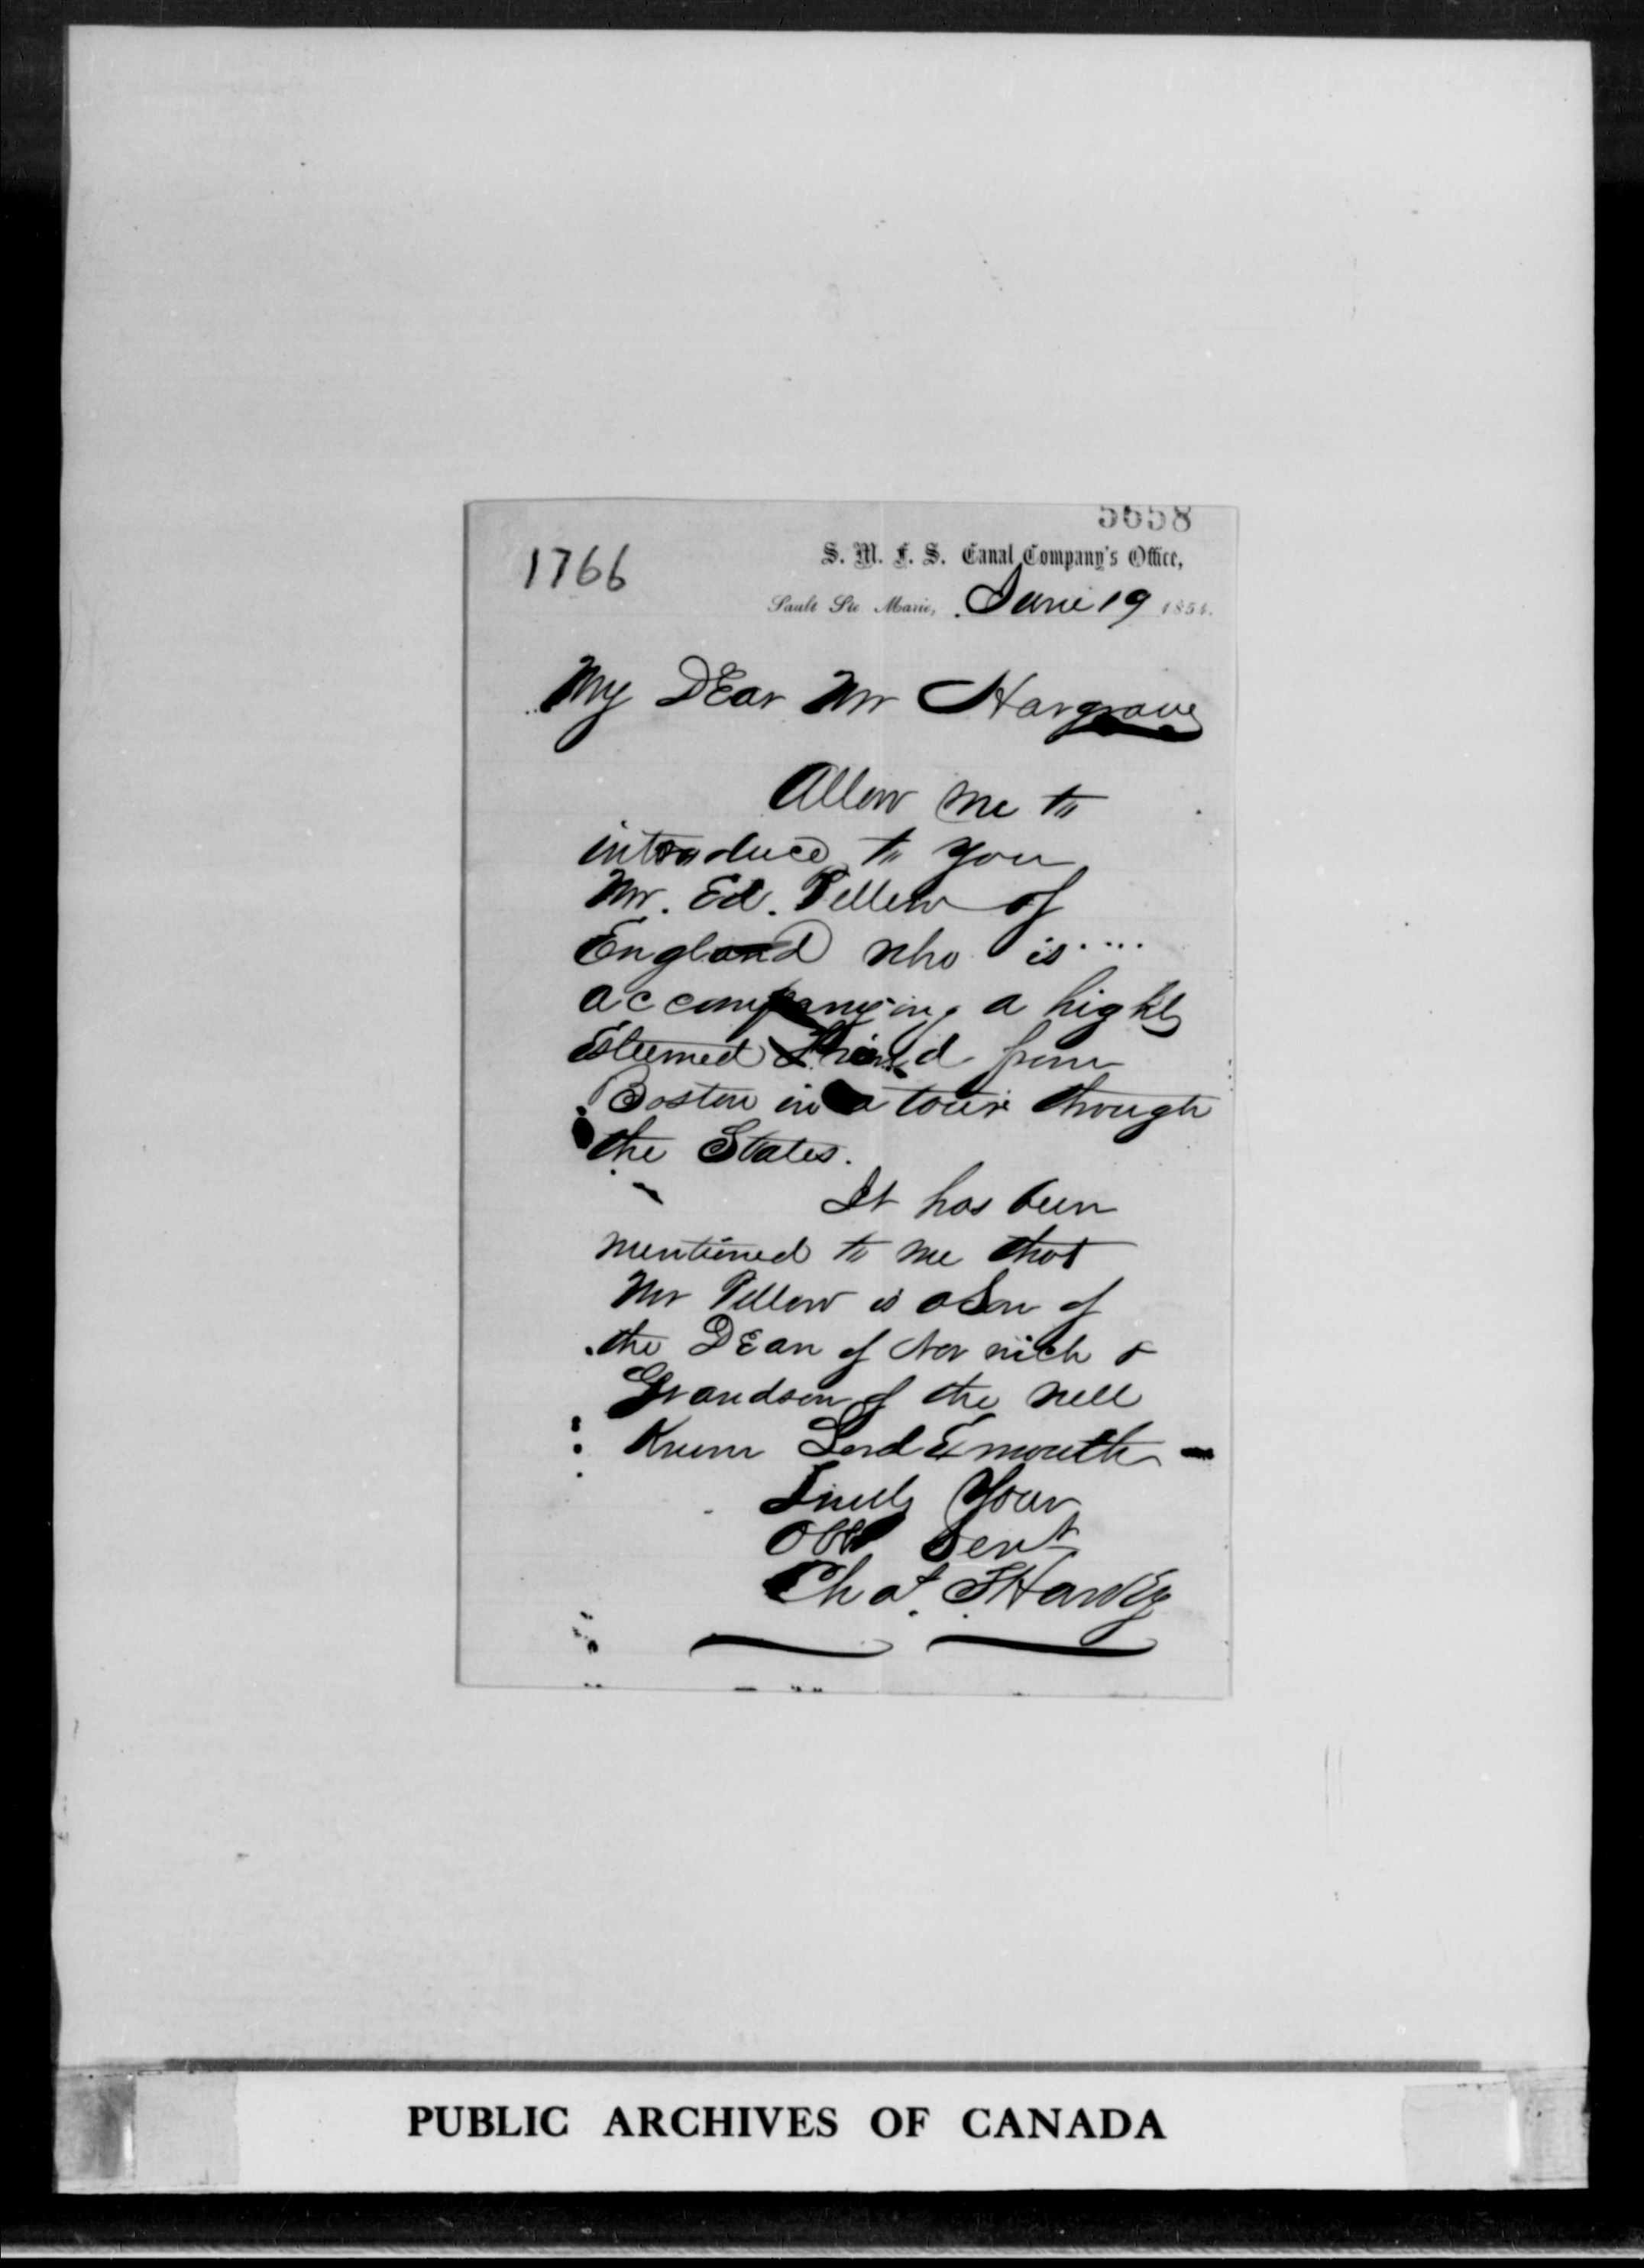 5658
1766
S. M. F. S. Canal Company's Office,
Sault Ste Marie, June 19 1854.
My Dear Mr Hargrave
Allow me to
introduce to you
Mr. Ed. Pellew of
England who is
accompanying a highly
Esteemed Friend from
Boston in a tour through
the States.
It has been
mentioned to me that
Mr Pellew is a Son of
the Dean of Norwich &
Grandson of the well
Known Lord Exmouth
Truly Your
Obt Servt
Chas. T Harvey
PUBLIC ARCHIVES OF CANADA